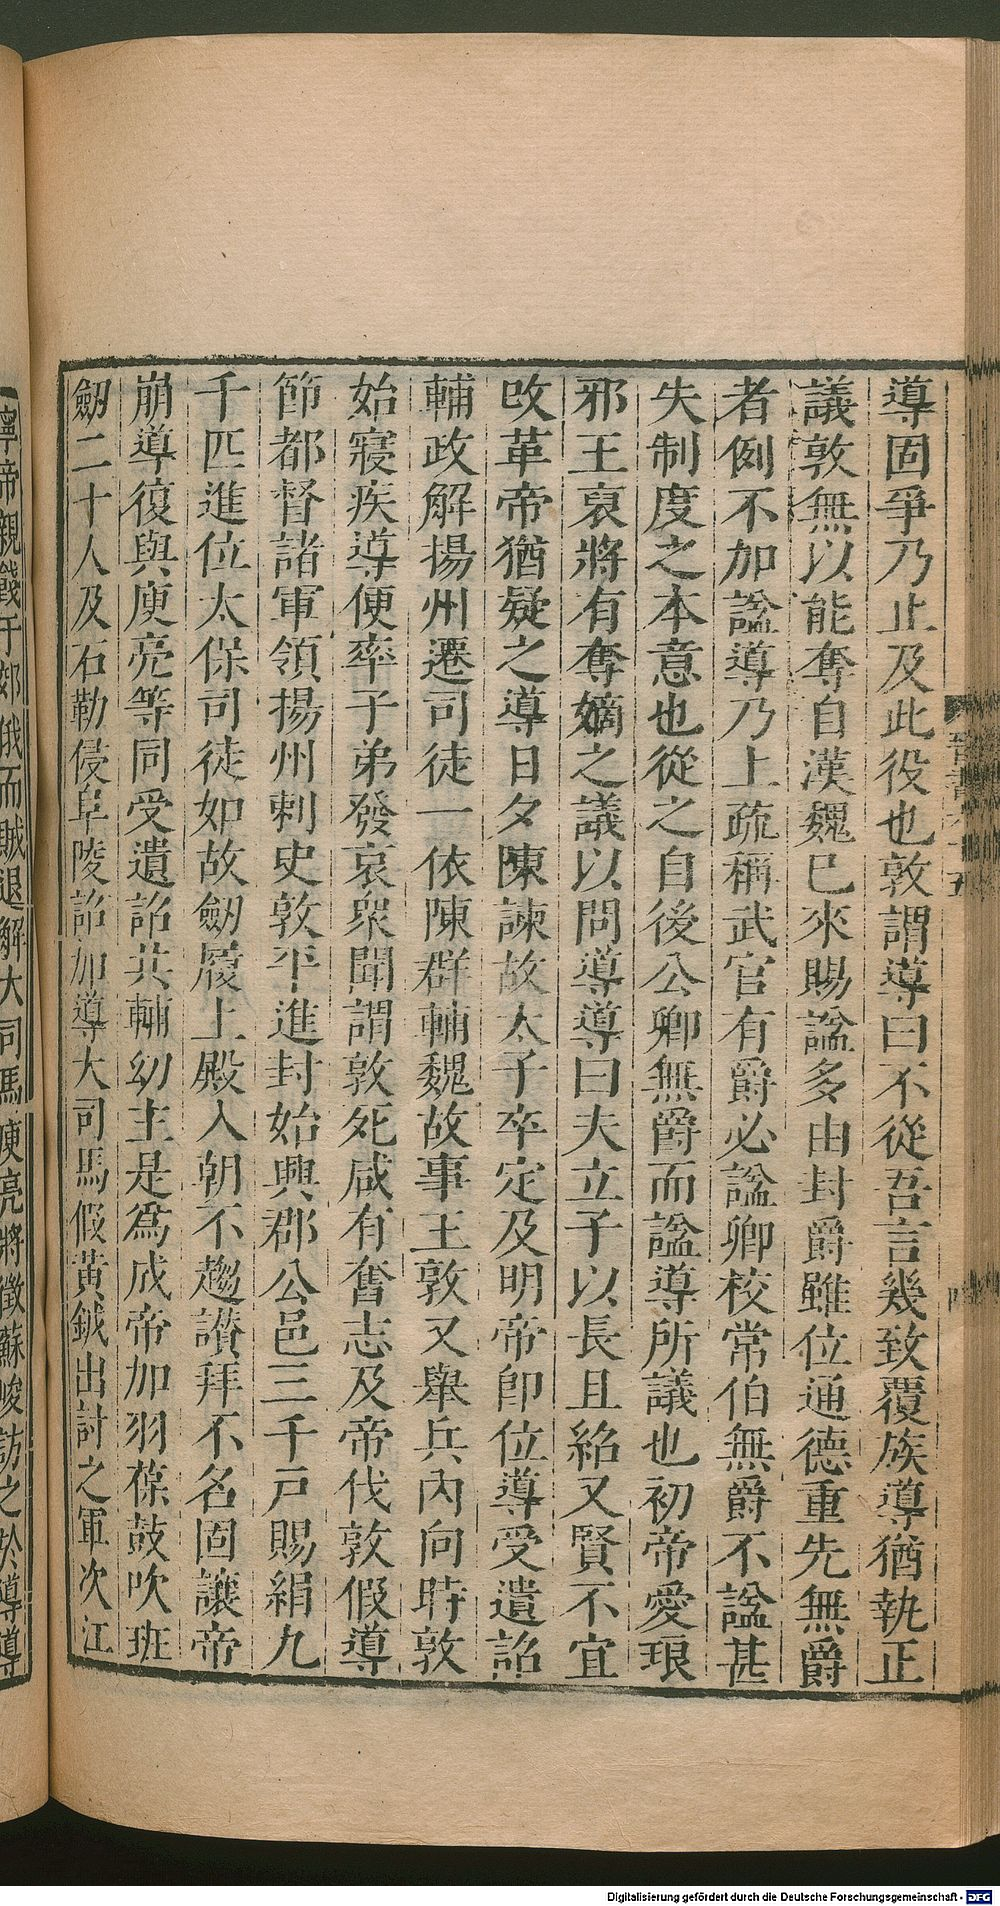 導固爭乃止及此役也敦謂導曰不從吾言幾致覆族導猶執正
議敦無以能奪自漢魏已來賜諡多由封爵雖位通德重先無爵
者例不加諡導乃上疏稱武官有爵必諡卿校常伯無爵不諡甚
失制度之本意也從之自後公卿無爵而諡導所議也初帝愛琅
邪王裒將有奪嫡之議以問導導曰夫立子以長且紹又賢不宜
改革帝猶疑之導日夕陳諫故太子卒定及明帝卽位導受遺詔
輔政解揚州遷司徒一依陳群輔魏故事王敦又舉兵內向時敦
始寢疾導便率子弟發哀衆聞謂敦死咸有奮志及帝伐敦假導
節都督諸軍領揚州刺史敦平進封始興郡公邑三千戶賜絹九
千匹進位太保司徒如故劒履上殿入朝不趨讃拜不名固讓帝
崩導復與庾亮等同受遺詔共輔幼主是爲成帝加羽葆鼓吹班
劒二十人及石勒侵阜陵詔加導大司馬假黃鉞出討之軍次江
寧帝親餞于郊俄而賊退解大司馬庾亮將徵蘇峻訪之於導導
Digitalisierung gefördert durch die Deutsche Forschungsgemeinschaft - DFG